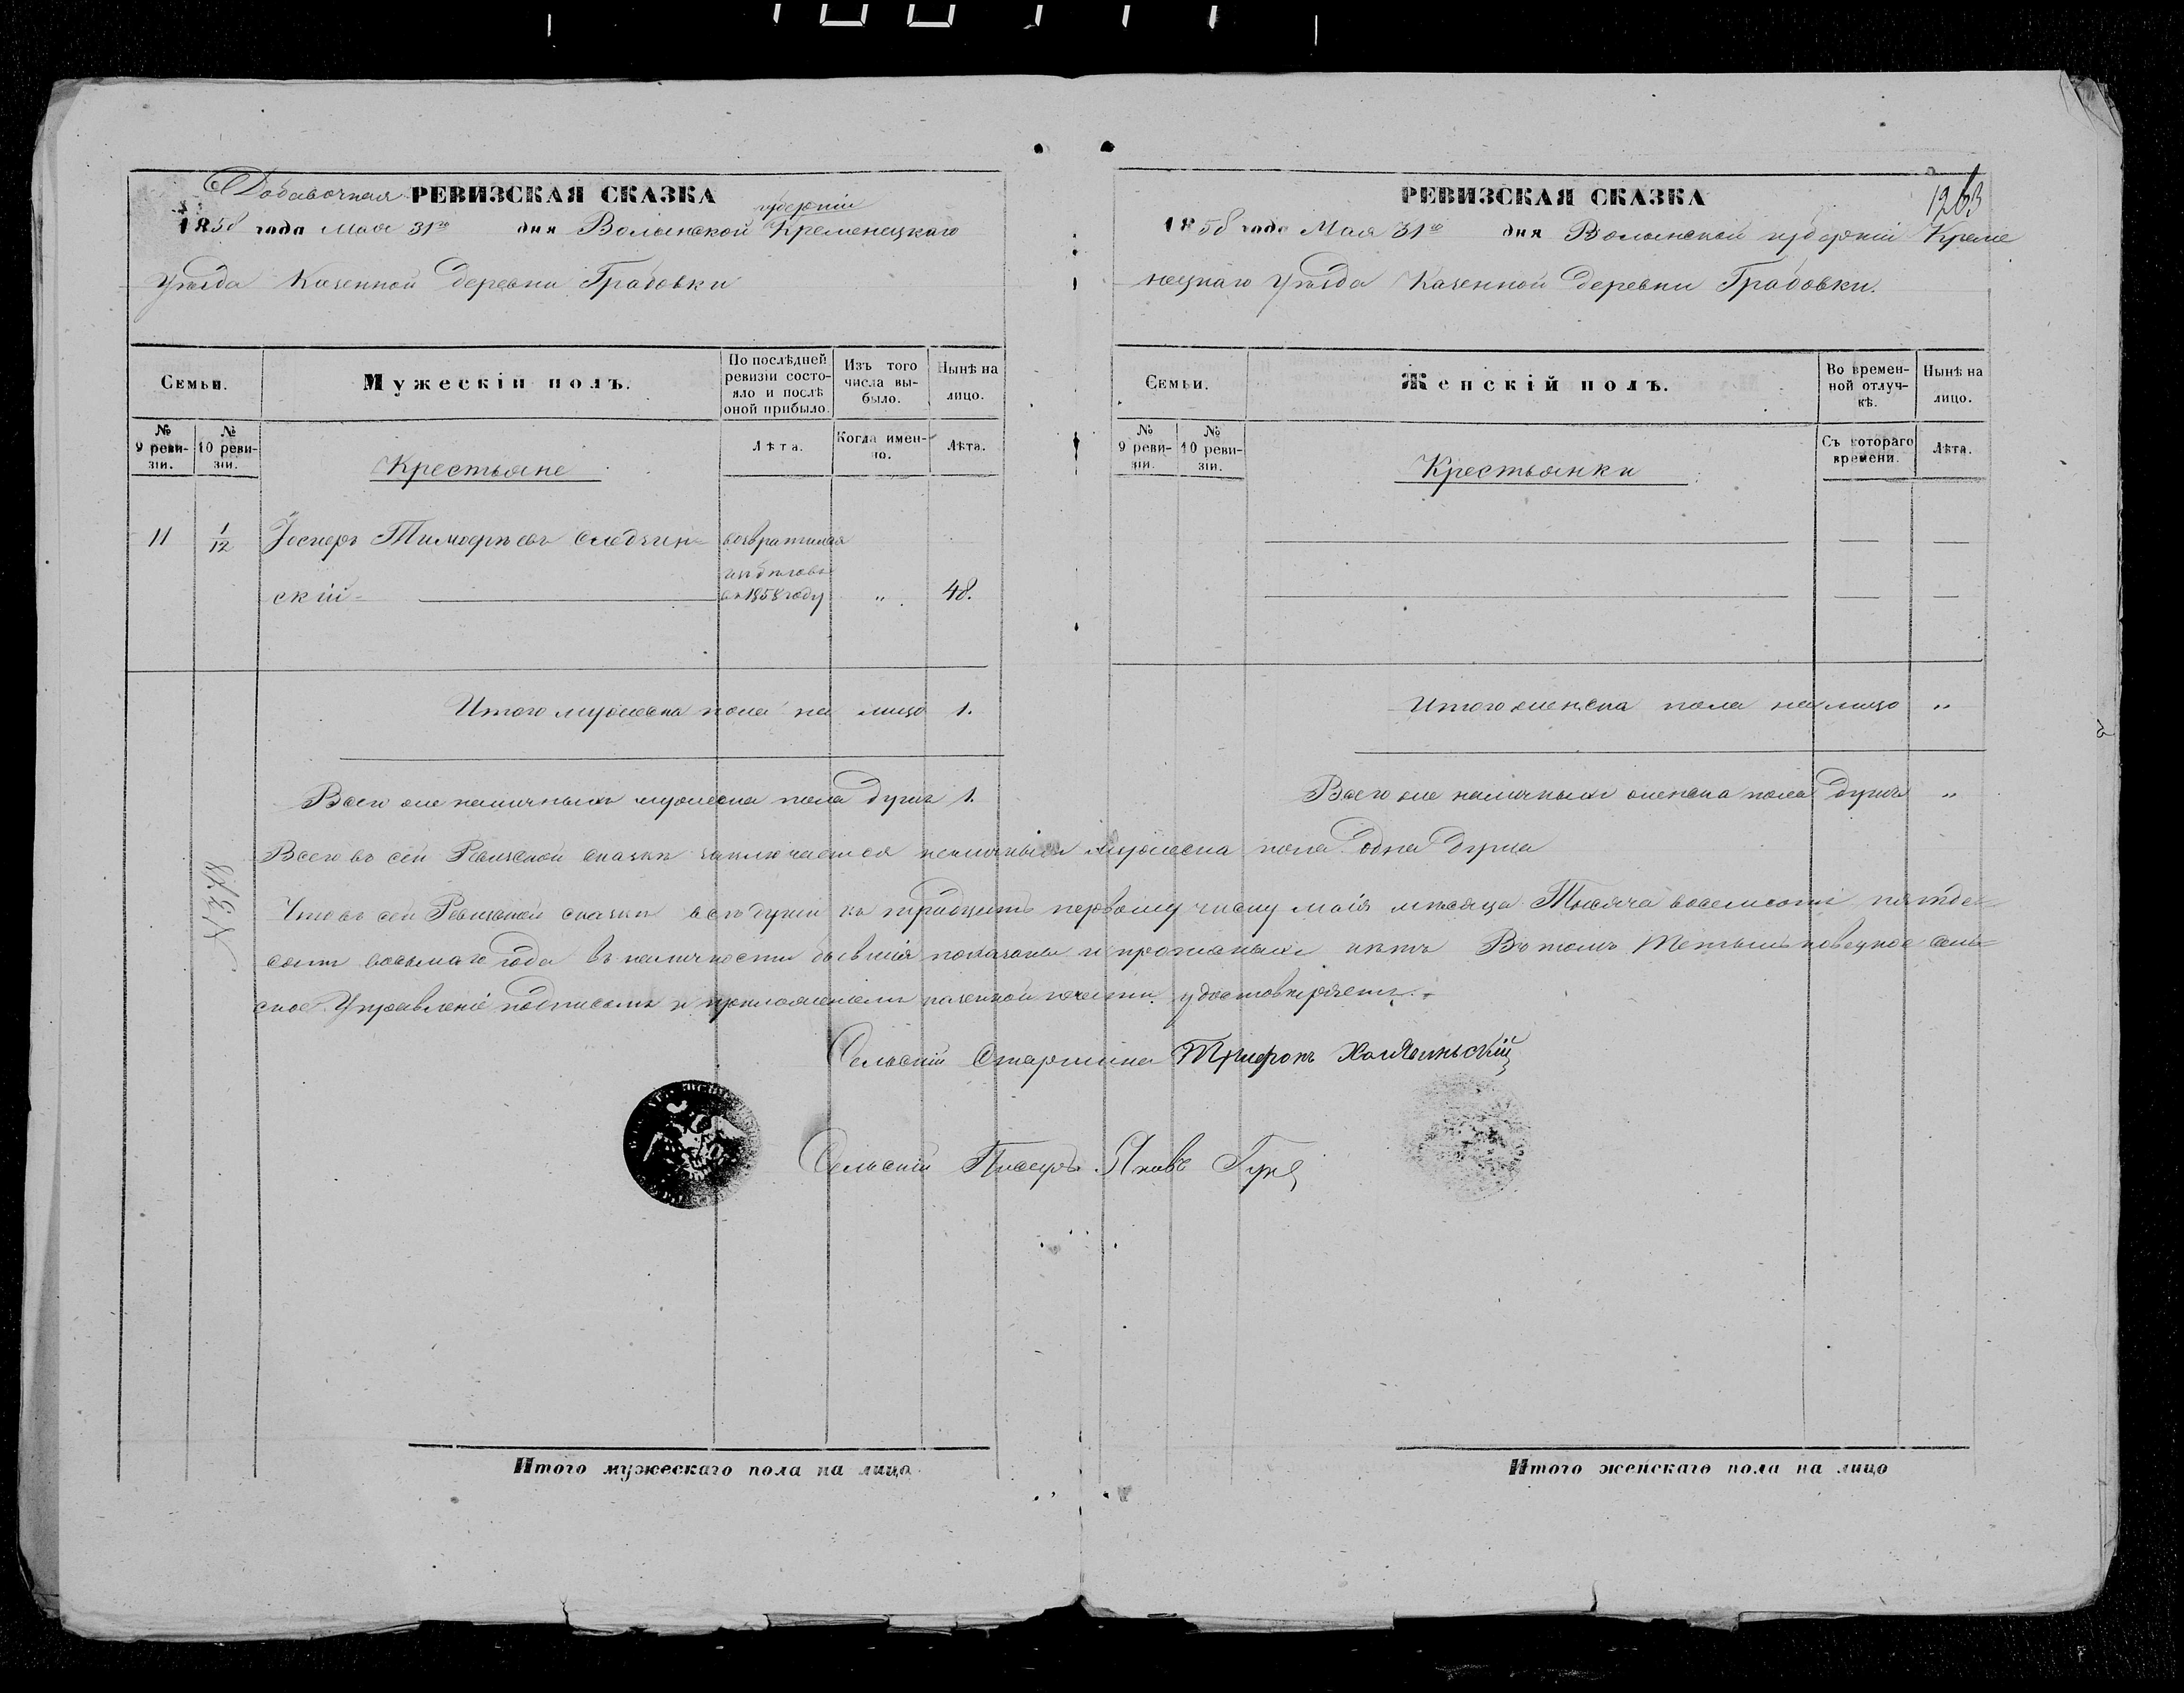 Добавочная РЕВИЗСКАЯ СКАЗКА
1858 года Мая 31го дня Волынской губерніи Кременецкаго
уѣзда Казенной деревни Грабовки
Семьи.
Мужескій полъ.
По послѣдней ревизіи состояло и послѣ оной прибыло.
Изъ того числа выбыло.
Нынѣ на лицо.
№ 9 ревизіи.
№ 10 ревизіи.
Крестьяне
Лѣта.
Когда именно.
Лѣта.
11 1/12 Тимофѣевъ возвратился
скій въ 1858 году " 48.
Итого мужеска пола на лицо 1.
Всего же наличныхъ мужеска пола душъ 1.
1263
РЕВИЗСКАЯ СКАЗКА
1858 года Мая 31го дня Волынской губерніи Креме
нецкаго уѣзда Казенной деревни Грабовки.
Семьи.
Женскій полъ.
Во временной отлучкѣ.
Нынѣ на лицо.
№ 9 ревизіи.
№ 10 ревизіи.
Крестьянки
Съ котораго времени.
Лѣта.
Итого женска пола на лицо "
Всего же наличныхъ женска пола душъ "
Всего въ сей Ревизской сказкѣ заключается наличныхъ мужеска пола одна душа
Что въ сей Ревизской сказкѣ всѣ души къ тридцать первому числу маія мѣсяца Тысяча восемсотъ пятьде=
сятъ восьмаго года въ наличности бывшія показаны и прописныхъ нѣтъ Въ томъ сель=
ское Управленіе подписомъ и приложеніемъ казенной печати удостовѣряетъ.
Сельскій Старшина Трифонъ
Сельскій Писарь Яковъ
Итого мужескаго пола на лицо
Итого женскаго пола на лицо